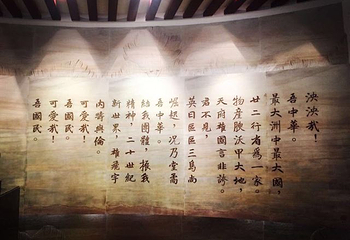 泱泱哉！
吾中華。
最大洲中最大國，
廿二行省爲一家。
物産腴沃甲大地，
天府雄國言非誇。
君不見，
英日區區三島尚
崛起，況乃堂矞
吾中華。
結我團體，振我
精神，二十世紀
新世界，雄飛宇
內疇與倫。
可愛哉！
吾國民。
可愛哉！
吾國民。